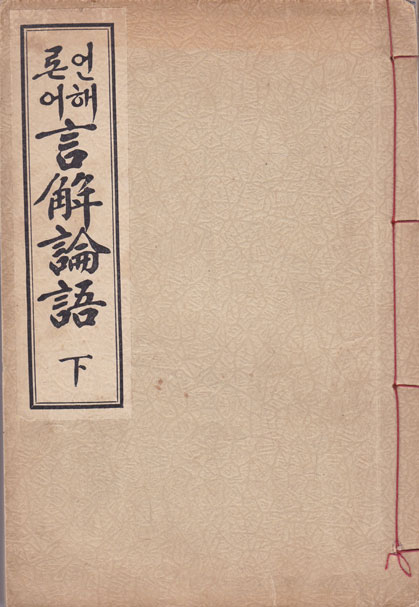 언해
론어
言解論語
下